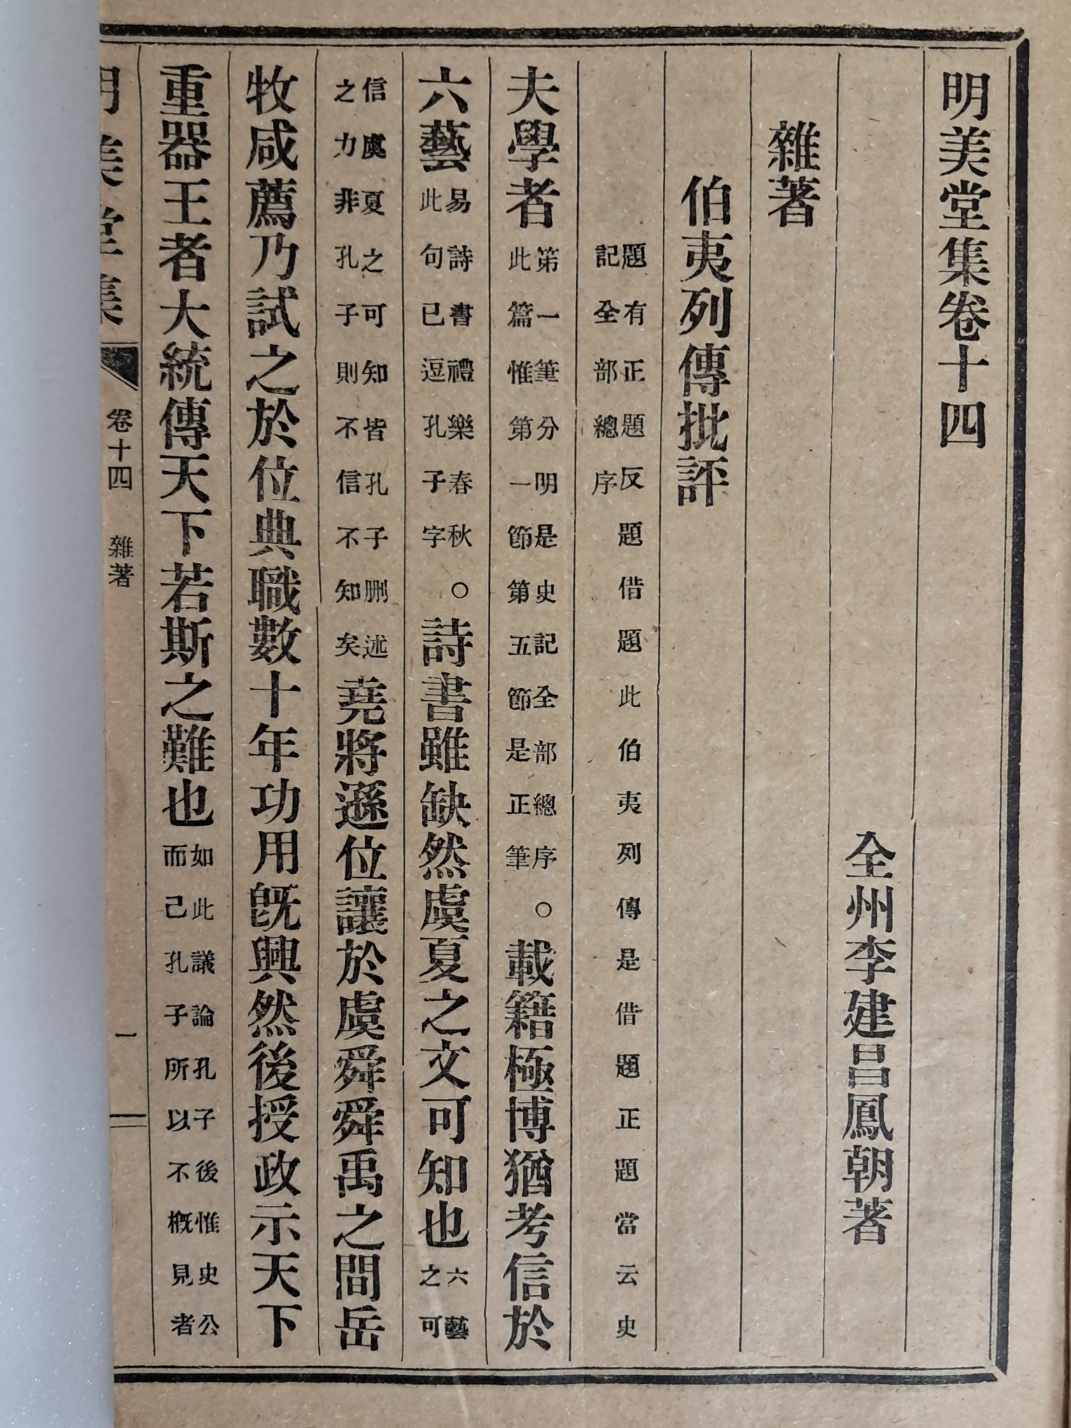 明美堂集卷十四
全州李建昌鳳朝著
雜著
伯夷列傳批評
題有正題反題借題此伯夷列傳是借題正題當云史記全部總序
夫學者第一筆分明是史記全部總序此篇惟第一節第五節是正筆○載籍極博猶考信於
六藝易詩書禮樂春秋此句已逗孔子字○詩書雖缺然虞夏之文可知也六藝之可
信虞夏之可知皆孔子刪述之力非孔子則不信不知矣堯將遜位讓於虞舜舜禹之間岳
牧咸薦乃試之於位典職數十年功用旣興然後授政示天下
重器王者大統傳天下若斯之難也如此議論孔子後惟史公而己孔子所以不槪見者
明美堂集 卷十四 雜著 一